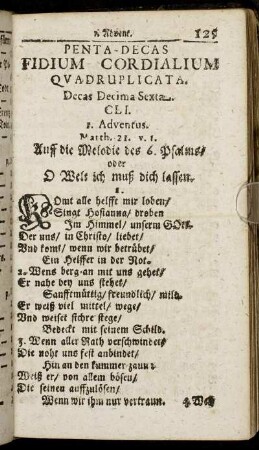 1. Advent. 125
PENTA-DECAS
FIDIUM CORDIALIUM
QVADRUPLICATA.
Decas Decima Sexta.
CLI.
1. Adventus.
Matth. 21. v. 1.
Auff die Melodie des 6. Psalms/
oder
O Welt ich muß dich lassen.
1.
KOmt alle helfft mir loben/
Singt Hosianna/ droben
Im Himmel/ unserm GOtt
Der uns/ in Christo/ liebet/
Und komt/ wenn wir betrübet/
Ein Helffer in der Not.
2. Wens berg-an mit uns gehet/
Er nahe bey uns stehet/
Sanfftmütig/ freundlich/ mild.
Er weiß viel mittel/ wege/
Und weiset sichre stege/
Bedeckt mit seinem Schild.
3. Wenn aller Rath verschwindet/
Die noht uns fest anbindet/
Hin an den kummer-zaun:
Weiß er/ von allem bösen/
Die seinen auffzulösen/
Wenn wir ihm nur vertraun.